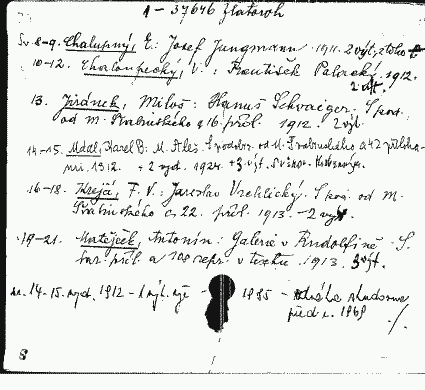 A - 37646 Zlatoroh
Sv. 8-9. Chalupný, E.: Josef Jungmann. 1911. 2 výt.
10-12. Chaloupecký, V.: František Palacký. 1912.
2 výt.
13. Jiránek, Miloš: Hanuš Schwaiger. S pod.
od M. Švabinského a 16 příl. 1912. 2 výt.
14-15. Mádl, Karel B.: M. Aleš. S podobr. od M. Švabinského a 42 příloha-
mi. 1912. + 2 vyd. 1924. + 3 výt.
16-18. Krejčí, F. V.: Jaroslav Vrchlický. S pod. od M.
Švabinského a 22 příl. 1913. - 2 výt.
19-21. Matějček, Antonín: Galerie v Rudolfině. S
bar. příl. a 108 repr. v textu. 1913. 3 výt.
sv. 14-15. vyd. 1912 - 1 výt. - 1985 -
před r. 1969 ./.
8